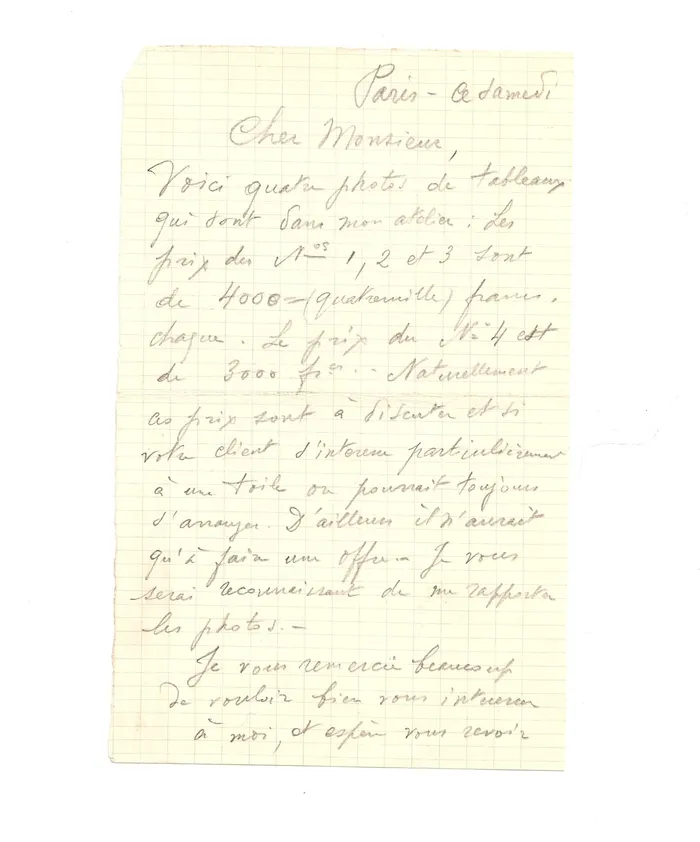 Paris - ce samedi
Cher Monsieur,
Voici quatre photos de tableaux
qui sont dans mon atelier : Les
prix des Nos 1, 2 et 3 sont
de 4000=(quatremille) francs.
chaque. Le prix du No 4 est
de 3000 frcs.. Naturellement
ces prix sont à discuter et si
votre client s'interesse particulièrement
à une toile on pourrait toujours
s'arranger. D'ailleurs il n'aurait
qu'à faire une offre - Je vous
serai reconnaissant de me rapporter
les photos. -
Je vous remercie beaucoup
de vouloir bien vous interesser
à moi, et espère vous revoir